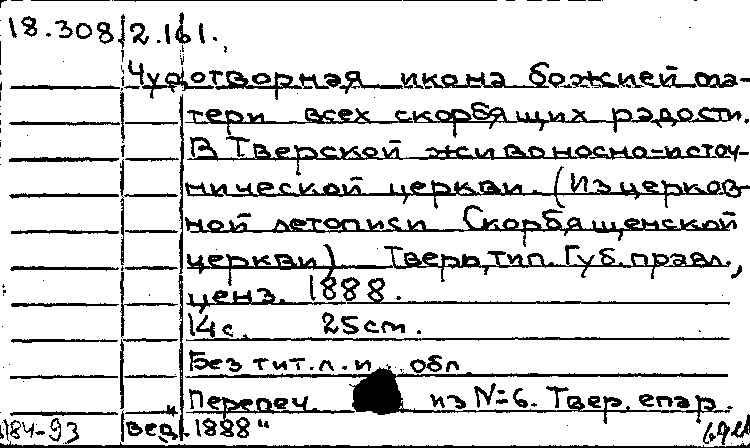 18.308.2.161.
Чудотворная икона божией ма-
тери всех скорбящих радости.
В Тверской живоносно-источ-
нической церкви. (Из церков-
ной летописи Скорбященской
церкви). Тверь, тип. Губ. правл.,
ценз. 1888.
14 с. 25 cm.
Без тит. л. и обл.
Перепеч. из №6. „Твер. епар.
184-93 вед. 1888"